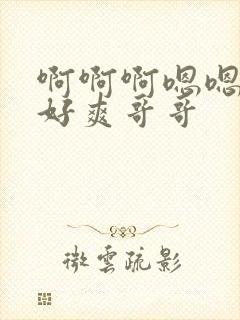 啊啊啊嗯嗯
好爽哥哥
微雲疏影